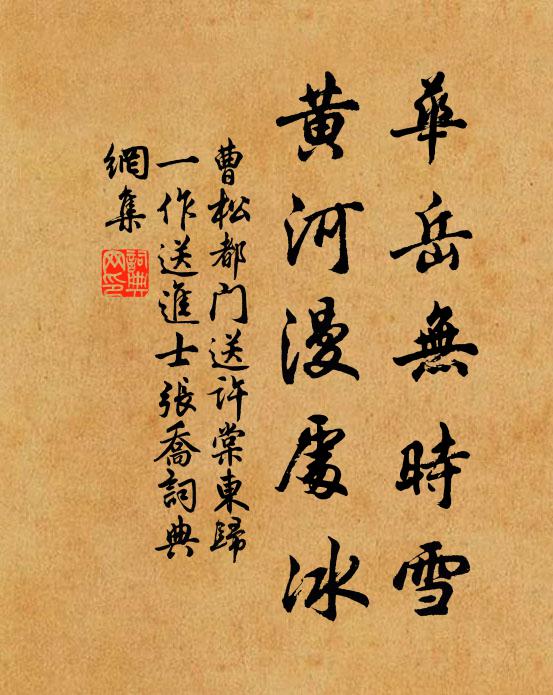 華岳無時雪
黄河漫處冰
曹松都门送許棠東歸
一作送進士張喬詞典
網集
詞典網印